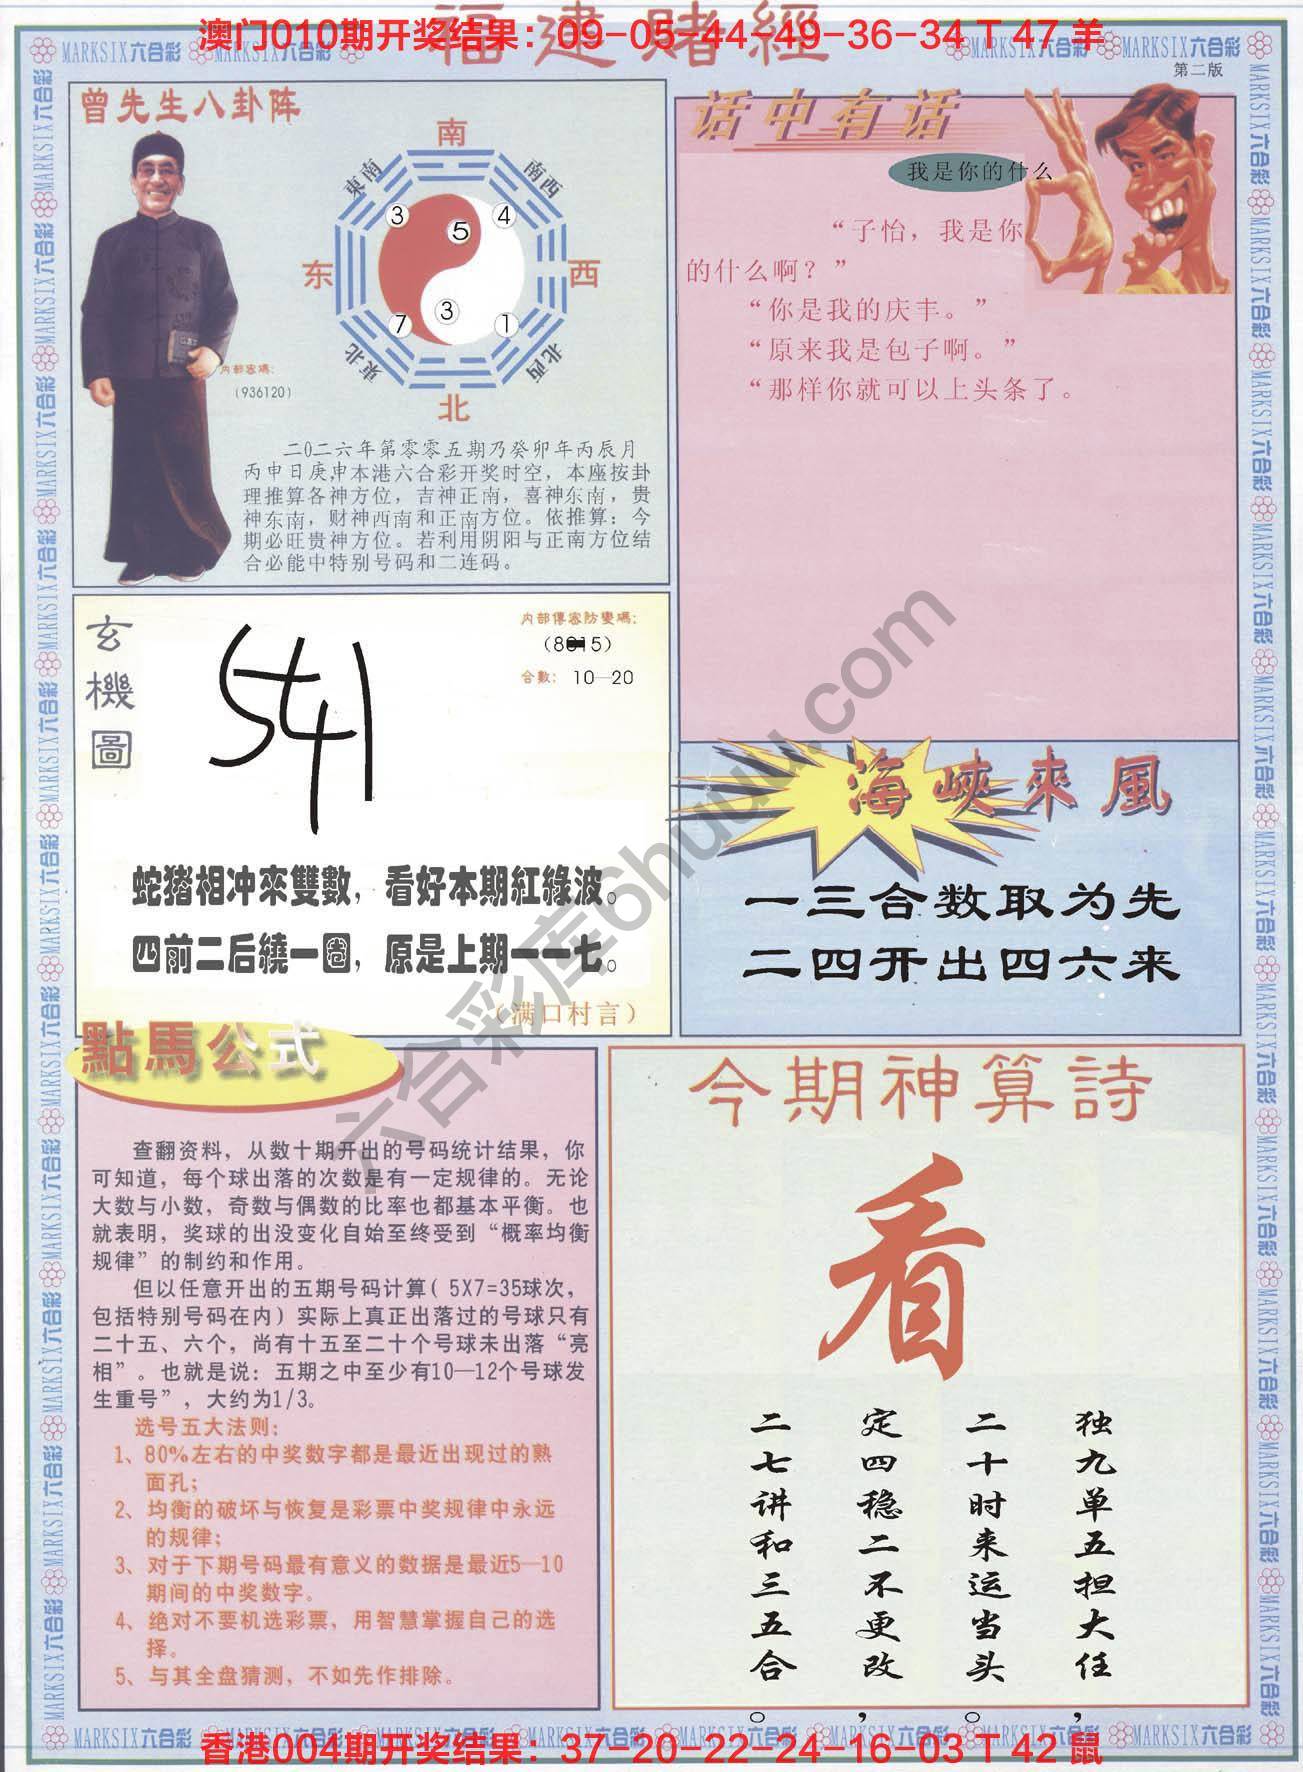 澳门010期开奖结果：09-05-44-49-36-34 T 47 羊
福建赌經
MARKSIX六合彩
第二版
曾先生八卦阵
南
東南
南西
3
5
4
东
西
7
3
1
東北
北西
北
内部密碼：
(936120)
二0二六年第零零五期乃癸卯年丙辰月
丙申日庚申本港六合彩开奖时空，本座按卦
理推算各神方位，吉神正南，喜神东南，贵
神东南，财神西南和正南方位。依推算：今
期必旺贵神方位。若利用阴阳与正南方位结
合必能中特别号码和二连码。
话中有话
我是你的什么
“子怡，我是你
的什么啊？”
“你是我的庆丰。”
“原来我是包子啊。”
“那样你就可以上头条了。
玄機圖
内部傳密防變碼：
合數： 10—20
541
蛇猪相冲來雙數，看好本期紅綠波。
四前二后繞一圈，原是上期一一七。
（满口村言）
海峽來風
一三合数取为先
二四开出四六来
點馬公式
查翻资料，从数十期开出的号码统计结果，你
可知道，每个球出落的次数是有一定规律的。无论
大数与小数，奇数与偶数的比率也都基本平衡。也
就表明，奖球的出没变化自始至终受到“概率均衡
规律”的制约和作用。
但以任意开出的五期号码计算( 5X7=35球次，
包括特别号码在内）实际上真正出落过的号球只有
二十五、六个，尚有十五至二十个号球未出落“亮
相”。也就是说：五期之中至少有10—12个号球发
生重号”，大约为1/3。
选号五大法则：
1、80%左右的中奖数字都是最近出现过的熟
面孔；
2、均衡的破坏与恢复是彩票中奖规律中永远
的规律；
3、对于下期号码最有意义的数据是最近5—10
期间的中奖数字。
4、绝对不要机选彩票，用智慧掌握自己的选
择。
5、与其全盘猜测，不如先作排除。
今期神算詩
看
独九单五担大任，
二十时来运当头。
定四稳二不更改，
二七讲和三五合。
六合彩库6huuu.com
香港004期开奖结果：37-20-22-24-16-03 T 42 鼠